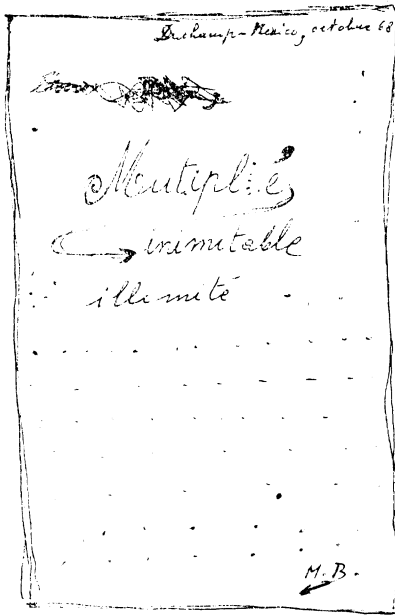 Duchamp - Mexico, octobre 68
Mutiplié
inimitable
illimité
M. B.